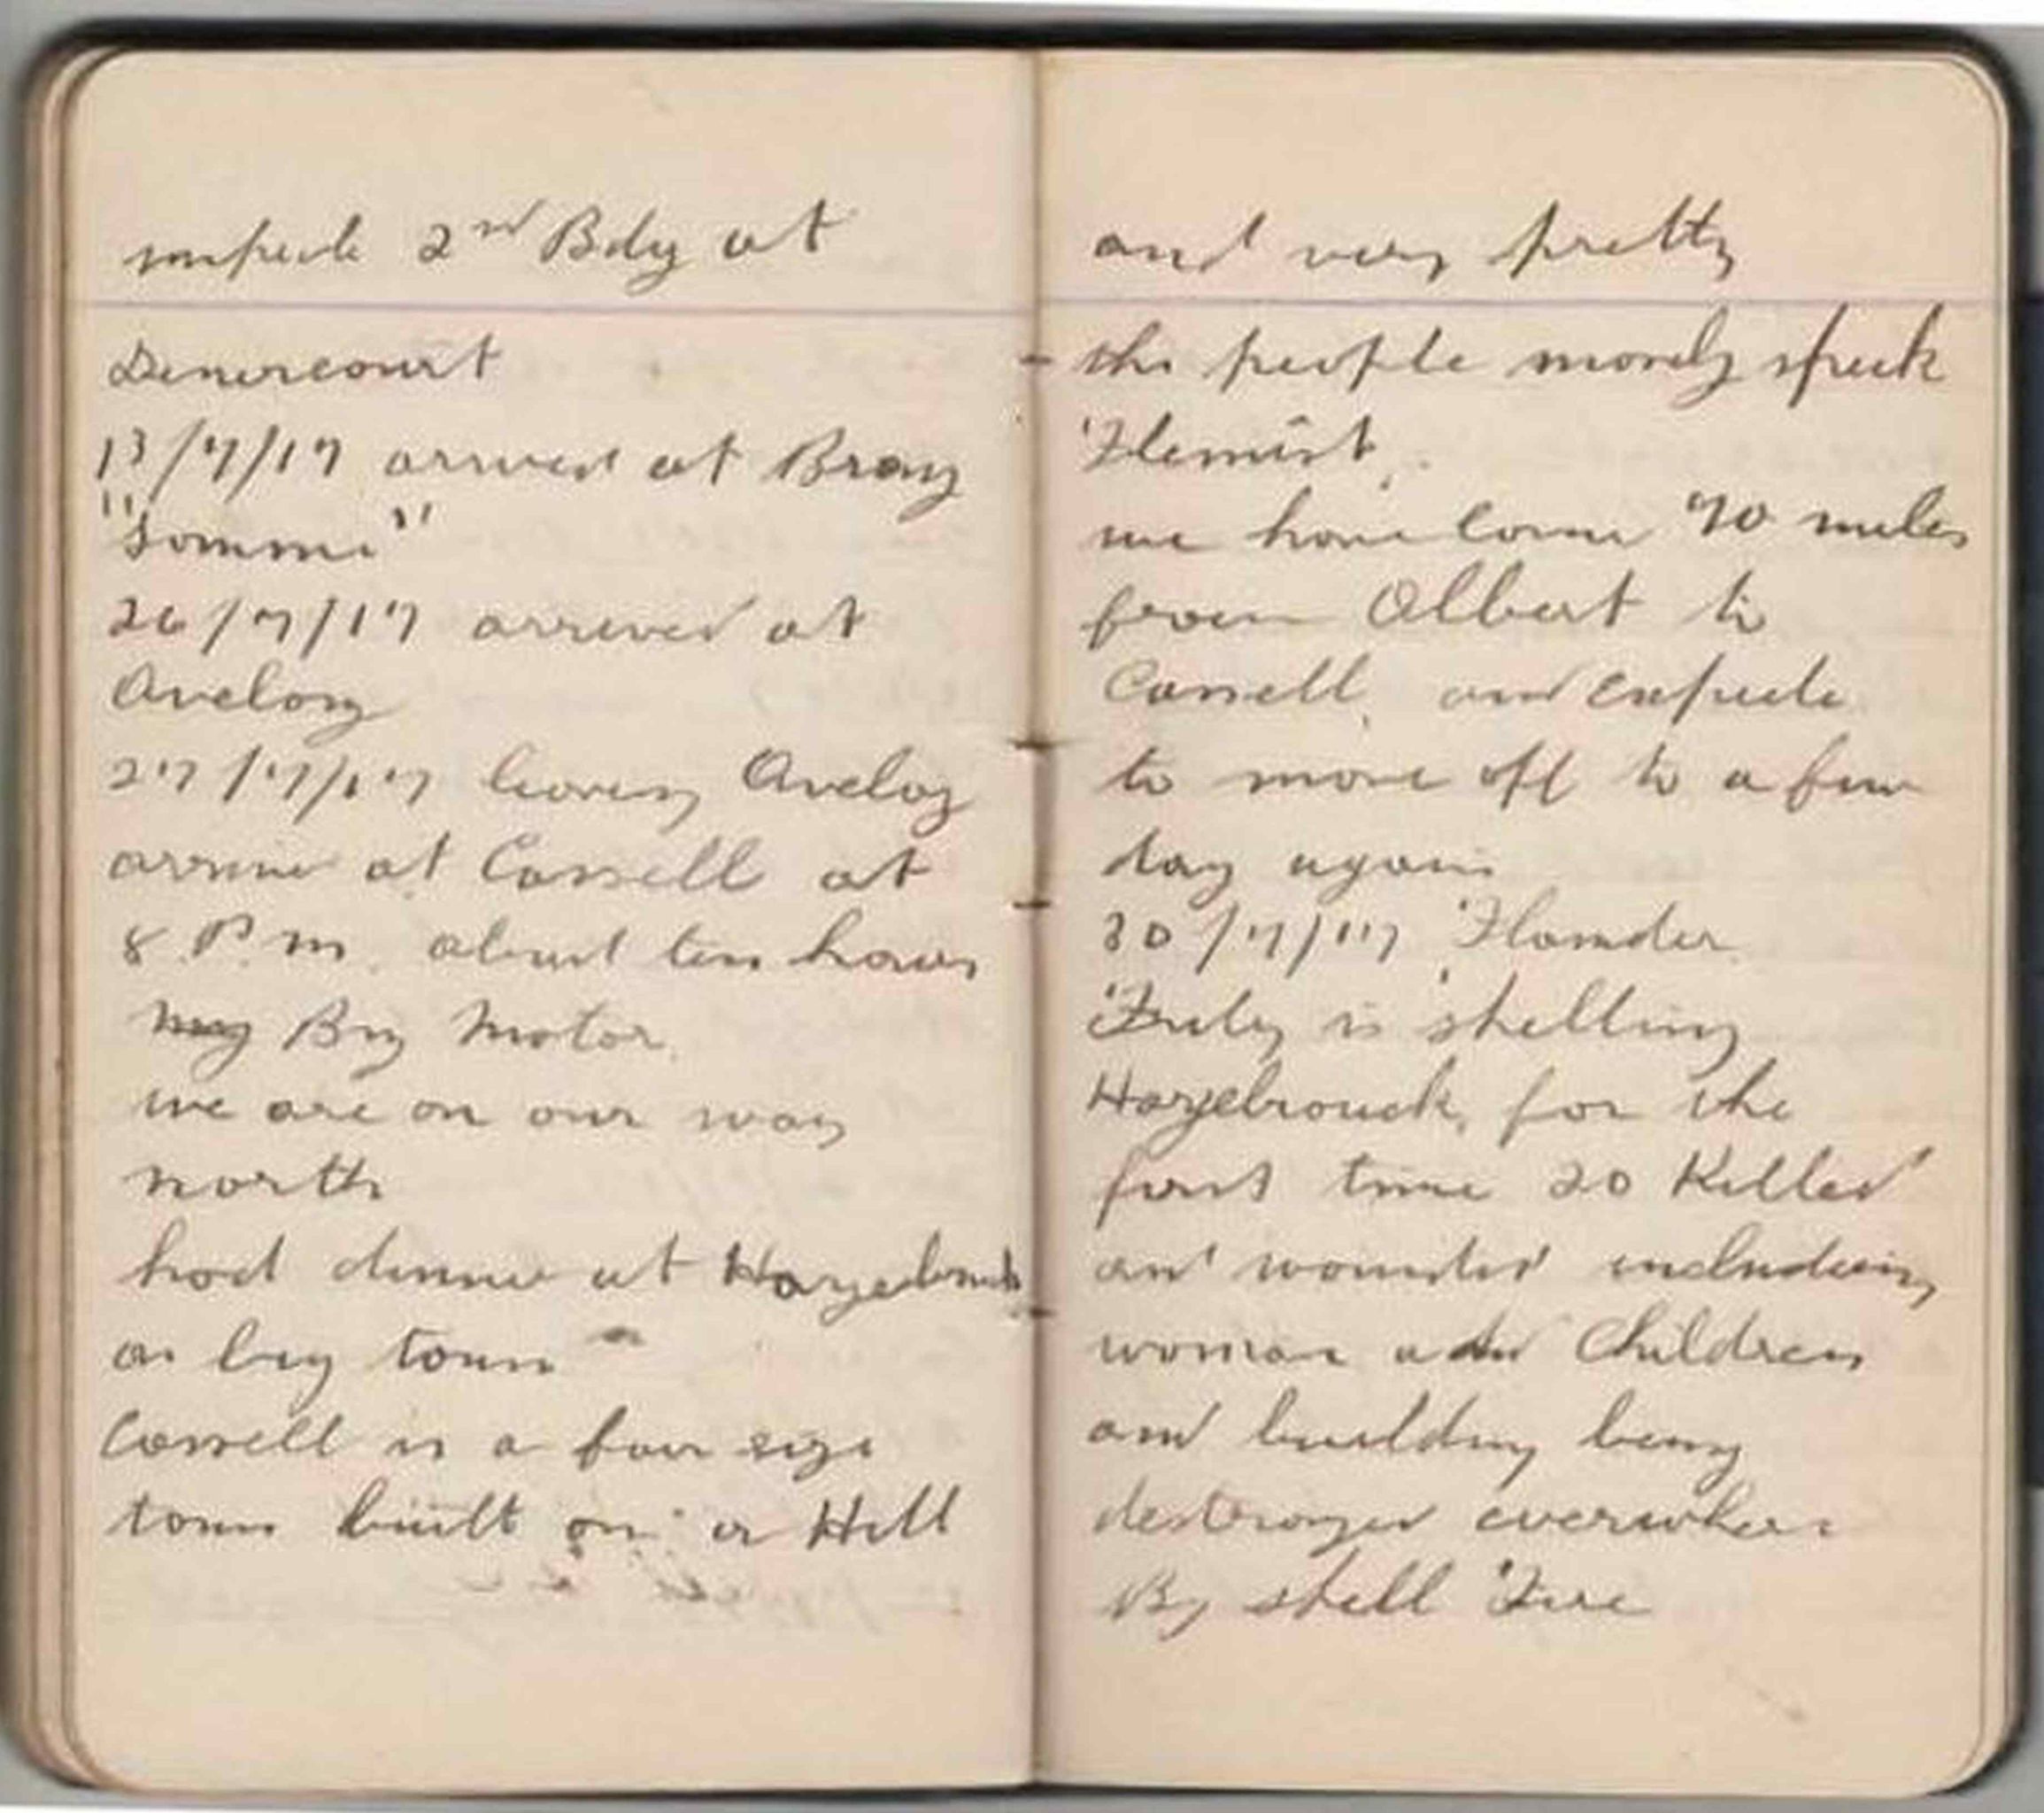 inspecte 2nd Bdy at
Denercourt
13/7/17 arrived at Bray
"Somme"
26/7/17 arrived at
Aveloy
27/7/17 leaving Aveloy
arrive at Cassell at
8 P.m. about ten hours
By Motor.
we are on our way
north
had dinner at Hazebruck
a big town
Cassell is a fair size
town built on a Hill
and very pretty
the people mostly speek
Flemist.
we have come 70 miles
from Albert to
Cassell, and expecte
to move off to a few
day again
30/7/17 Flander
is shelling
Hazebrouck, for the
first time 20 Killed
and wounded including
woman and Children
and building being
destroyed everwhere
By shell Fire